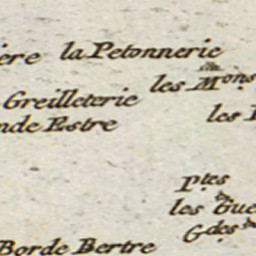 ière la Petonnerie
les Mons
Greilleterie
nde Estre
les
Ptes
les Gue
Gdes
Borde Bertre